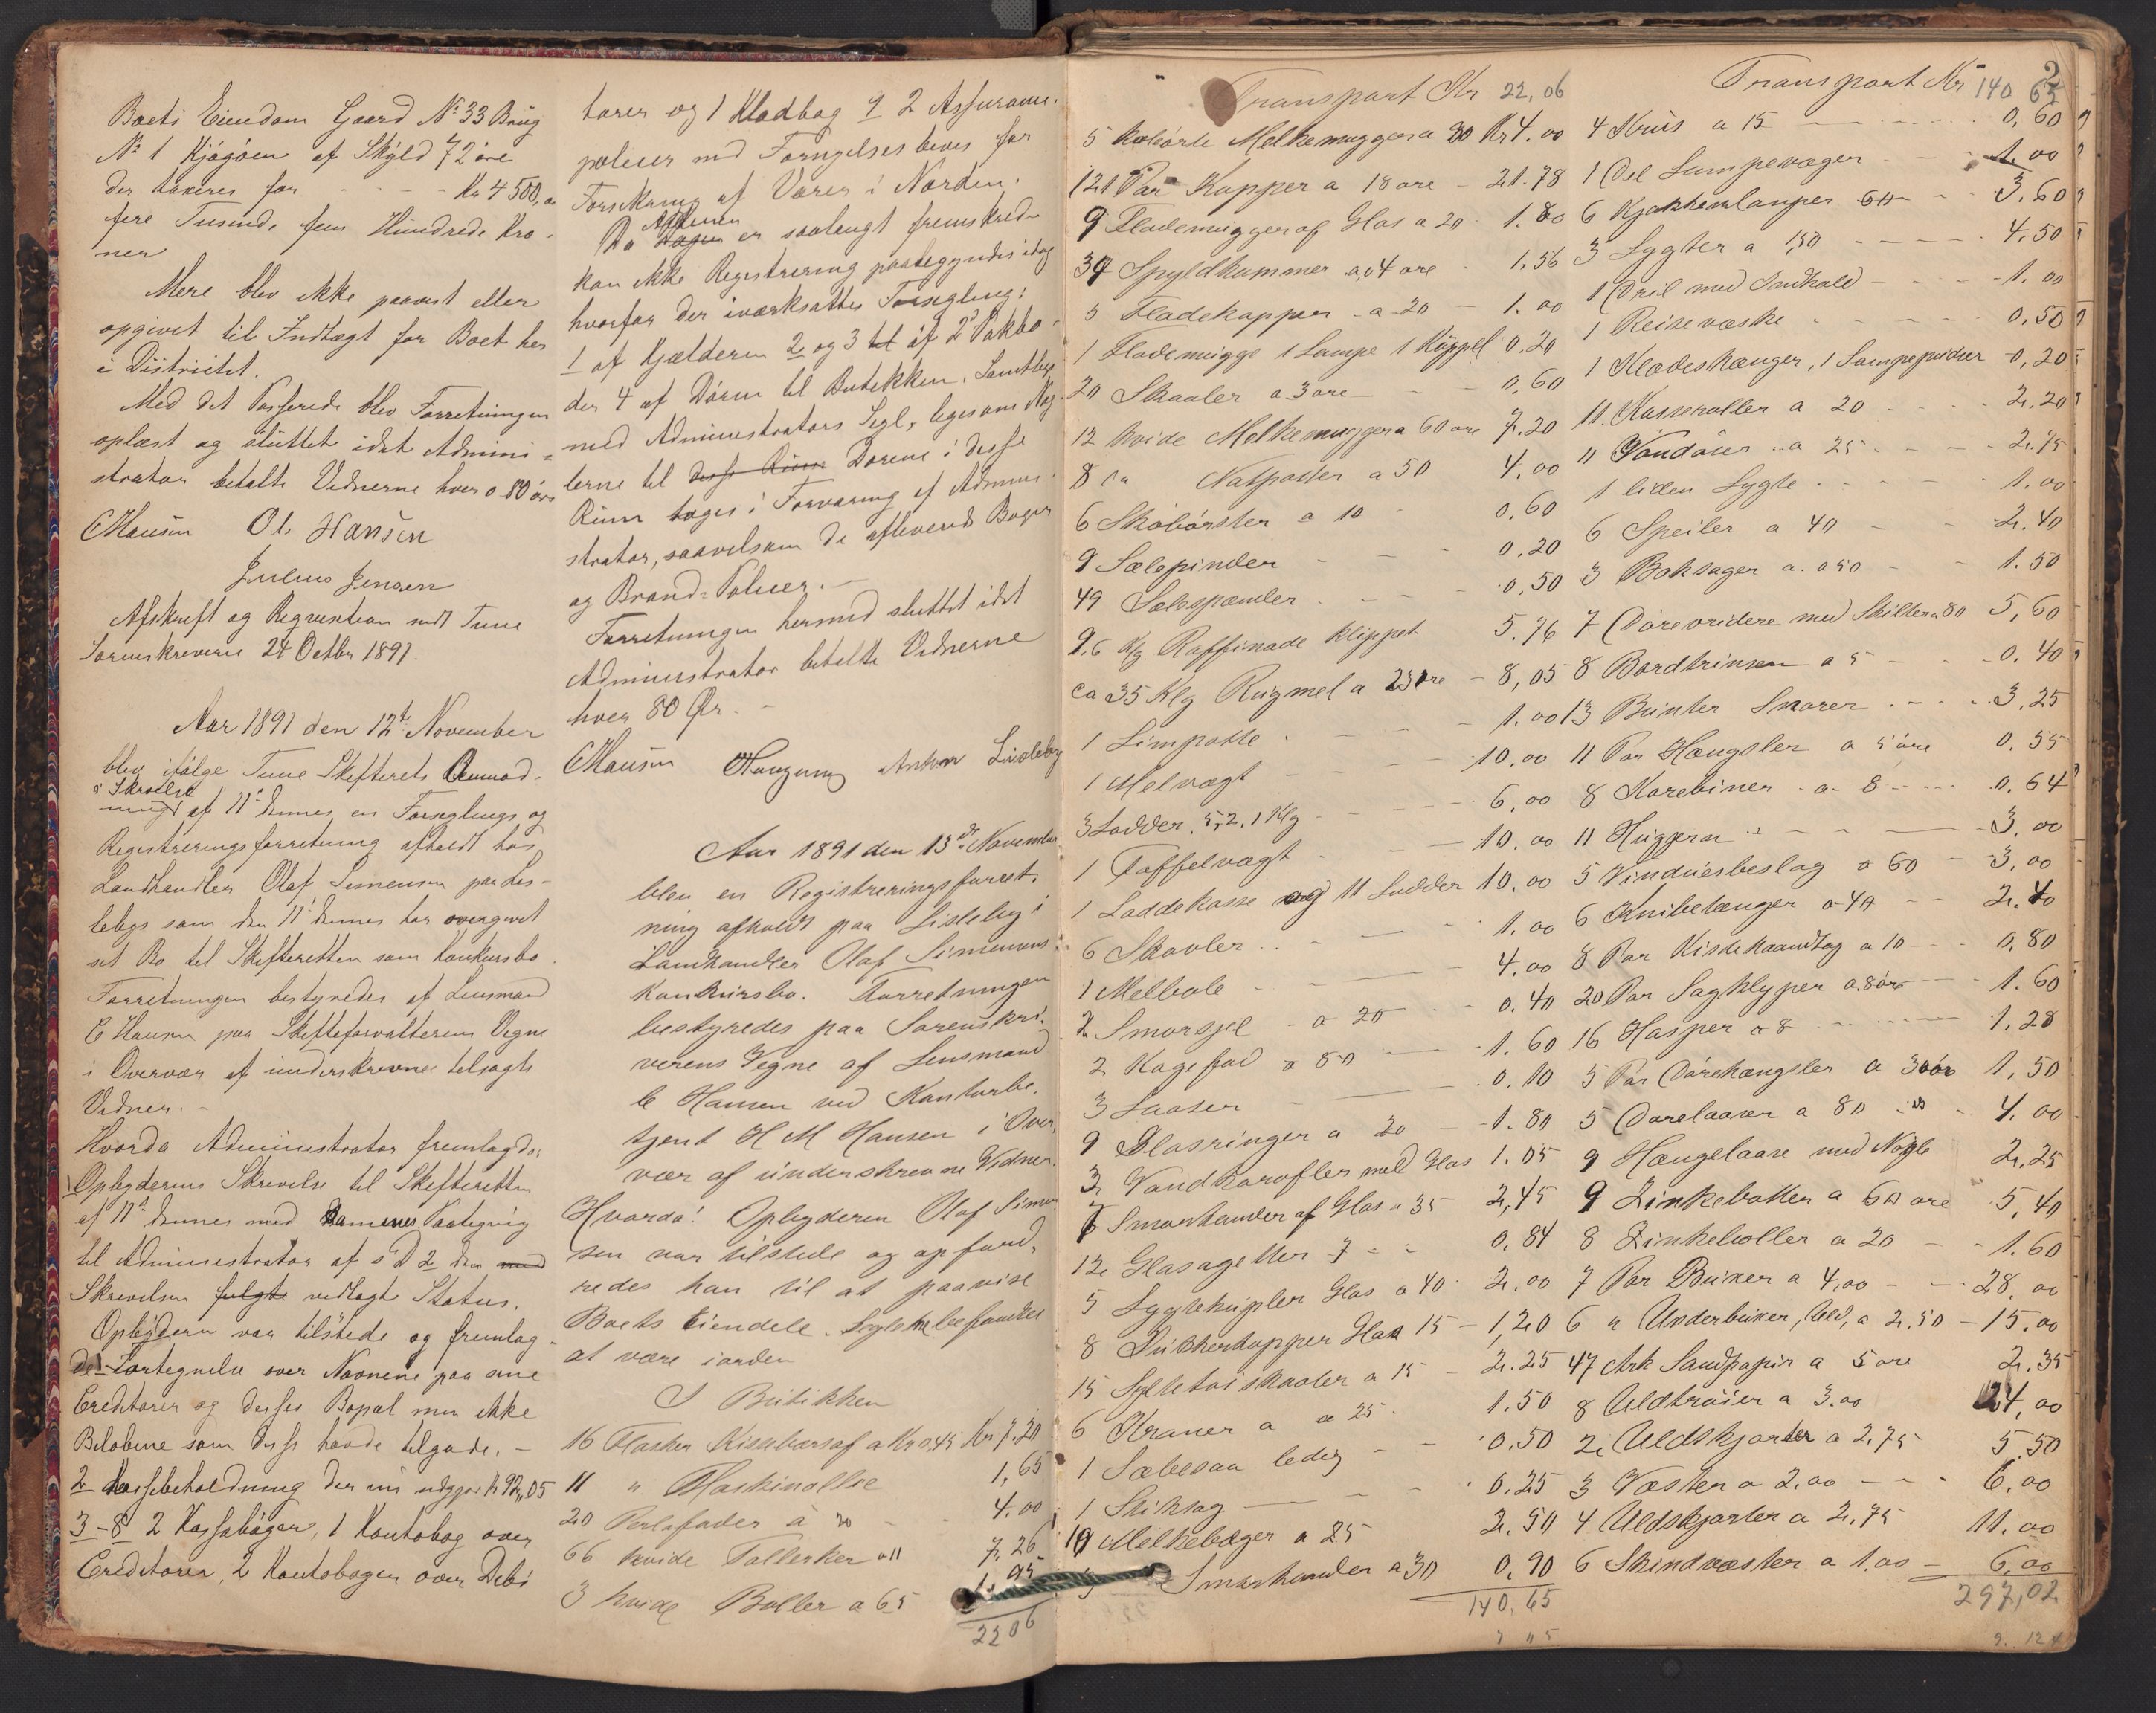 Boets Eiendom Gaard No 33 Brug
No 1 Kjøgøen af Skyld 72 øre
der taxeres for - - - - Kr 4500,00
fire Tusinde fem Hundrede Kro-
ner
Mere blev ikke paavist eller
opgivet til Indtægt for Boet her
i Districtet.
Med det Passerede blev Forretningen
oplæst og sluttet idet Admini-
strator betalte Vidnerne hver a 80 øre
CHansen Ol. Hansen
Julius Jensen
Afskrift og Reqvisition sendt Tune
Sorenskriveri 24 Octbr 1891.
Aar 1891 den 12te November
blev ifølge Tune Skifterets
Skrivelse af 11te dennes en Forseglings og
Registreringsforretning afholdt hos
Landhandler Olaf Simensen paa Lis-
leby som den 11te dennes har overgivet
sit Bo til Skifteretten som Konkursbo.
Forretningen bestyredes af Lensmand
C Hansen paa Skifteforvalterens Vegne
i Overvær af underskrevne tilsagte
Vidner. -
Hvorda Administrator fremlagde:
1 Opbyderens Skrivelse til Skifteretten
af 11te dennes med Sammes Paategning
til Administrator af s D 2 den med
Skrivelsen fulgte vedlagt Status.
Opbyderen var tilstede og fremlag-
de Fortegnelse over Navnene paa sine
Creditorer og disses Bopæl men ikke
Beløbene som disse havde tilgode. -
2 Kassebeholdning der nu udgjør kr 92,05
3-8 2 Kassabøger, 1 Kontobog over
Creditorer, 2 Kontobøger over Debi
torer og 1 Kladbog 9 2 Assurance-
policer med Fornyelsesbevis for
Forsikring af Varer i Norden.
Da Aftenen Dagen er saalangt fremskreden
kan ikke Registrering paabegyndes idag
hvorfor der iværksattes Forsegling:
1 af Kjælderen 2 og 3 til af 2de Pakbo-
der 4 af Døren til Butikken. Samtlige
med Administrators Segl, ligesom Nøg-
lerne til disse Rum Dørene i disse
Rum toges i Forvaring af Admini-
strator, saavelsom de afleverede Bøger
og Brand-Policer. -
Forretningen hermed sluttet idet
Administrator betalte Vidnerne
hver 80 Øre. -
CHansen Anton Lisleby
Aar 1891 den 13de November
blev en Registreringsforret-
ning afholdt paa Lisleby i
Landhandler Olaf Simensens
Konkursbo. Forretningen
bestyredes paa Sorenskri-
verens Vegne af Lensmand
C Hansen ved Kontorbe-
tjent H M Hansen i Over-
vær af underskrevne Vidner.
Hvorda! Opbyderen Olaf Simen
sen var tilstede og opford-
redes han til at paavise
Boets Eiendele. Seglene befandtes
at være iorden
I Butikken
16 Flasker Kirsebærsaft a Kr 0,45 Kr 7.20
11 " Maskinollie 1,65
20 Perlefader à 20 - - 4.00
66 hvide Tallerker a 11 7,26
3 hvide Boller a 65 1.95
2206
2
Transport Kr 22,06
5 kulørte Melkemugger a 80 Kr 4.00
121 Par Kopper a 18 øre - 21.78
9 Flødemugger af Glas a 20 1.80
39 Spyldkummer a 04 øre 1.56
5 Flødekopper - a 20 - 1.00
1 Flødemugge 1 Lampe 1 Kuppel 0.20
20 Skaaler a 3 øre - - 0,60
12 hvide Melkemugger a 60 øre 7.20
8 ca Natpotter a 50 4,00
6 Skobørster a 10 - 0,60
9 Sælepinder - - - 0,20
49 Sælespænder - - - 0,50
9.6 Kg Raffinade klippet 5.76
ca 35 Klg Rugmel a 23 øre - 8,05
1 Limpotte - - - 1.00
1 Melvægt - - - 10,00
3 Lodder 5, 2, 1 Klg - - - 6,00
1 Taffelvægt - - 10.00
1 Loddekasse og 11 Lodder 10,00
6 Skovler - - - 1.00
1 Melbøle - - - 4,00
2 Smørspe a 20 0.40
2 Kagefad a 80 - 1.60
3 Laaser - - 0.10
9 Glasringer a 20 - 1.80
3 Vandkarafler med Glas 1.05
7 Smørkander af Glas a 35 2,45
12 Glasagetter 7 - 0,84
5 Lygtekupler Glas a 40 2,00
8 Sukkerkopper Glas 15 - 1,20
15 Syltetøiskaaler a 15 - 2.25
6 Kraner a a 25 1.50
1 Sæbesaa ledig - - 0.50
1 Stiksag - - 0.25
10 Melkebøger a 25 2,50
3 Smørkander a 30 0,90
140,65
Transport Kr 140 65
4 Krus a 15 - - - 0,60
1 Del Lampevæger - - 1.00
6 Kjøkkenlamper 60 - - 3,60
3 Lygter a 1,50 - - - 4,50
1 Dril med Indhold - - - 1.00
1 Reisevæske - - - 0,50
1 Klædeshænger, 1 Lampepudser 0,20
11 Kasseroller a 20 - - 2,20
11 Vandøser a 25 - - 2.75
1 liden Lygte - - - 1.00
6 Speiler a 40 - - 2.40
3 Baksager a. a 50 - - 1.50
7 Dørevridere med Skilter a 80 5,60
8 Bordtrinser a 5 - - 0.40
13 Bunter Snører - - 3,25
11 Par Hængsler a 5 øre 0.55
8 Karebiner a 8 - - 0,64
11 Huggern - - 3,00
5 Vinduesbeslag a 60 - 3,00
6 Knibetænger a 40 - 2.40
8 Par Kistehaandtag a 10 - 0,80
20 Par Sagklyper a 8 øre - 1.60
16 Hasper a 8 - - 1.28
5 Par Dørehængsler a 30 øre 1,50
5 Dørelaaser a 80 - - 4,00
9 Hængelaase med Nøgle 2.25
9 Zinkebøtter a 60 øre 5,40
8 Zinkeboller a 20 - - 1.60
7 Par Buxer a 4,00 - - 28,00
6 " Underbuxer, Uld, a 2.50 - 15,00
47 Ark Sandpapir a 5 øre 2.35
8 Uldtrøier a 3.00 24,00
2 Uldskjorter a 2,75 5.50
3 Væster a 2,00 - - 6,00
4 Uldskjorter a 2,75 11.00
6 Skindvæster a 1,00 - 6,00
297,02